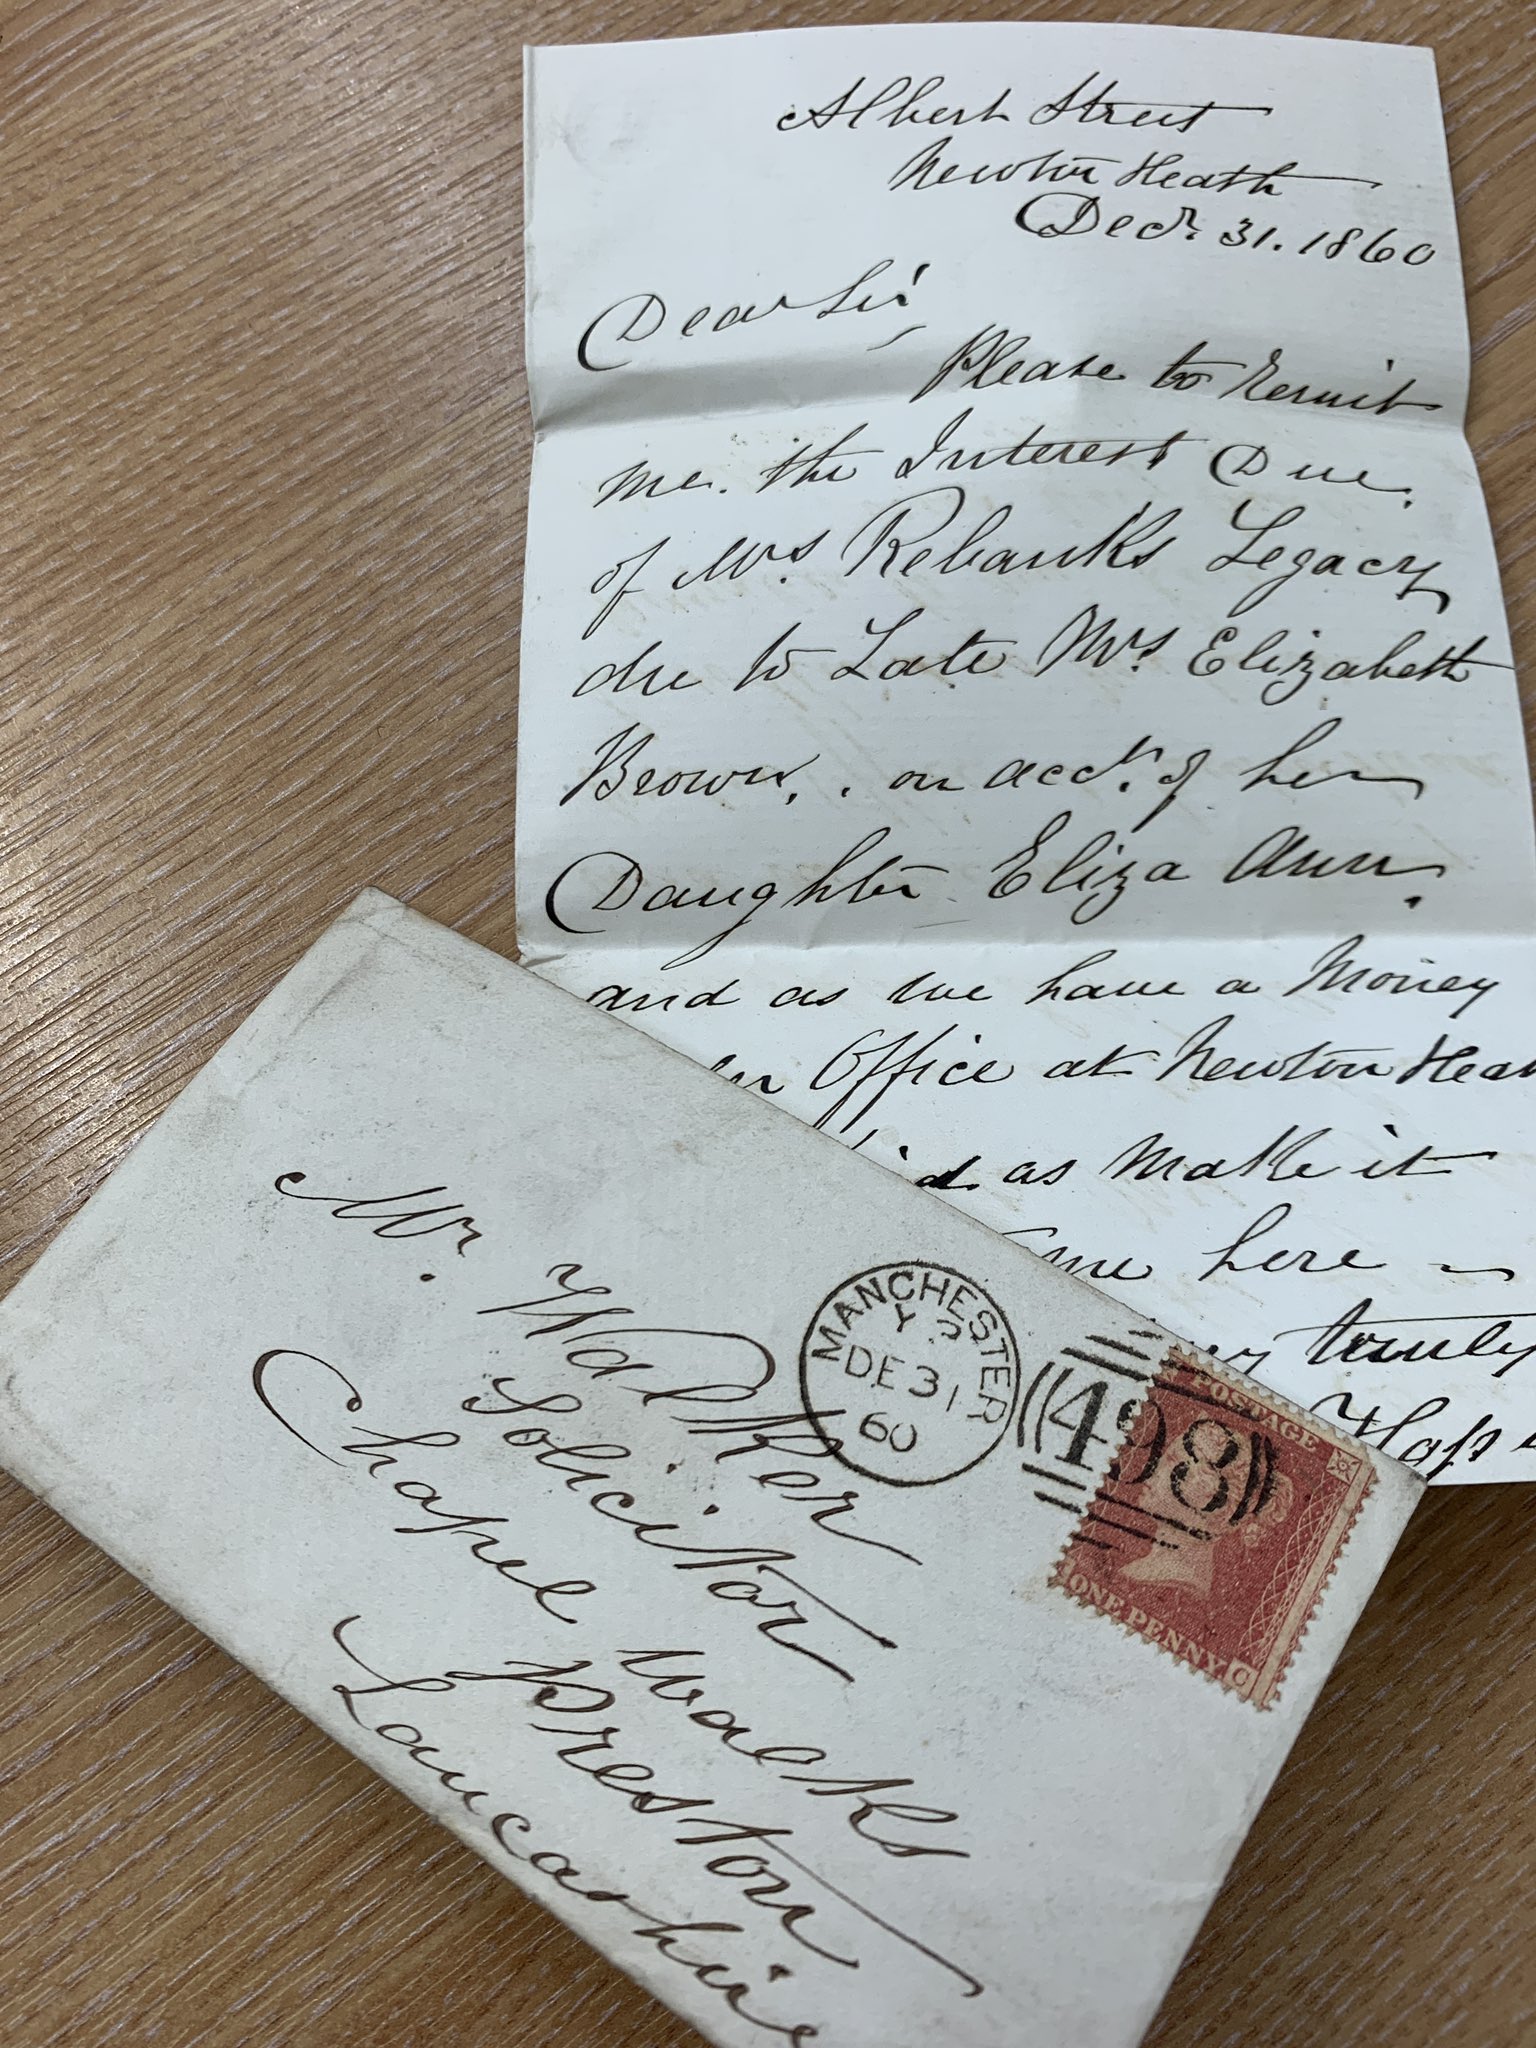 Albert Street
Newton Heath
Decr. 31. 1860
Dear Sir
Please to remit
me. the Interest Due.
of Mrs. Rebanks Legacy
due to Late Mrs. Elizabeth
Brown, . on acct. of her
Daughter Eliza Ann.
and as we have a Money
Office at Newton
as Make it
here
truly
Mr. Walker
Solicitor
Chapel Walks
Preston
Lancashire
MANCHESTER
DE 31
60
498
POSTAGE
ONE PENNY
C